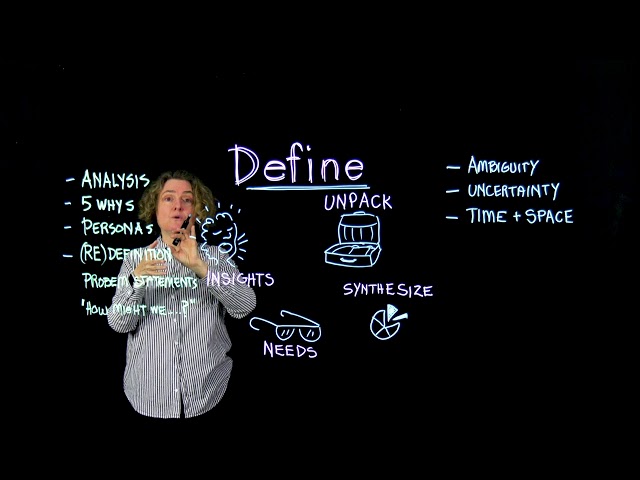 Define
- ANALYSIS
- 5 WHYS
- PERSONAS
- (RE)DEFINITION
PROBLEM STATEMENTS
"HOW MIGHT WE....?"
INSIGHTS
UNPACK
SYNTHESIZE
NEEDS
- AMBIGUITY
- UNCERTAINTY
- TIME + SPACE